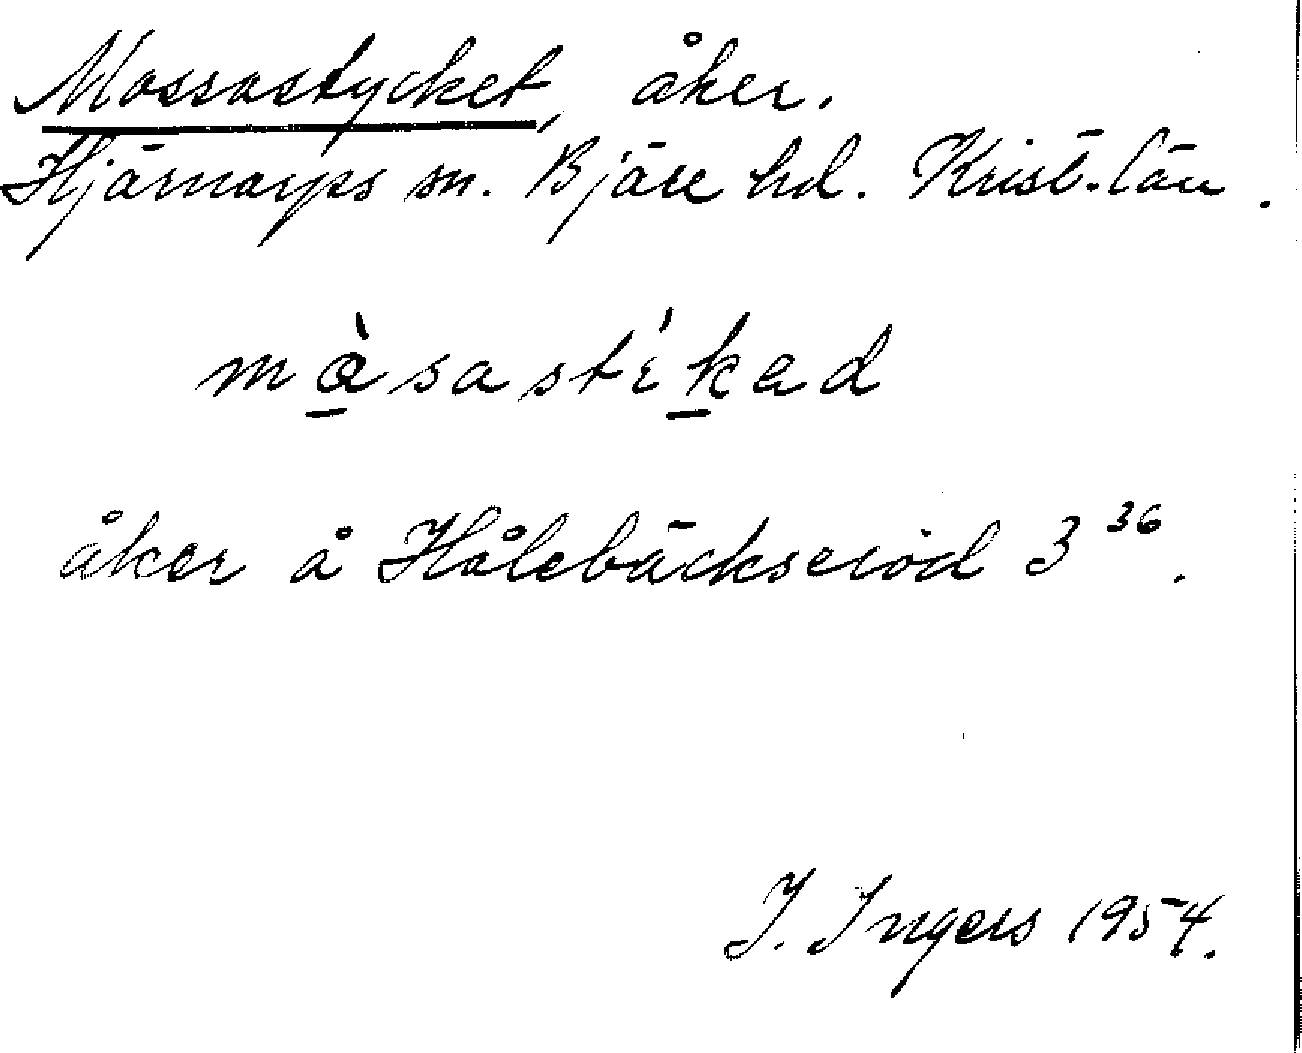 Mossastycket, åker.
Hjärnarps sn. Bjäre hd. Krist. län.
mò̱sastíḵad
åker å Hålebäckseröd 3³⁶.
I. Ingers 1954.